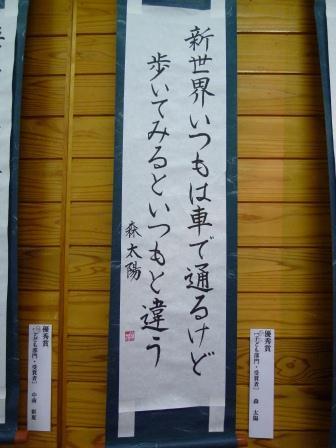 新世界いつもは車で通るけど
歩いてみるといつもと違う
森太陽
優秀賞
【子ども部門・受賞者】 森 太陽
優秀賞
【子ども部門・受賞者】 中南